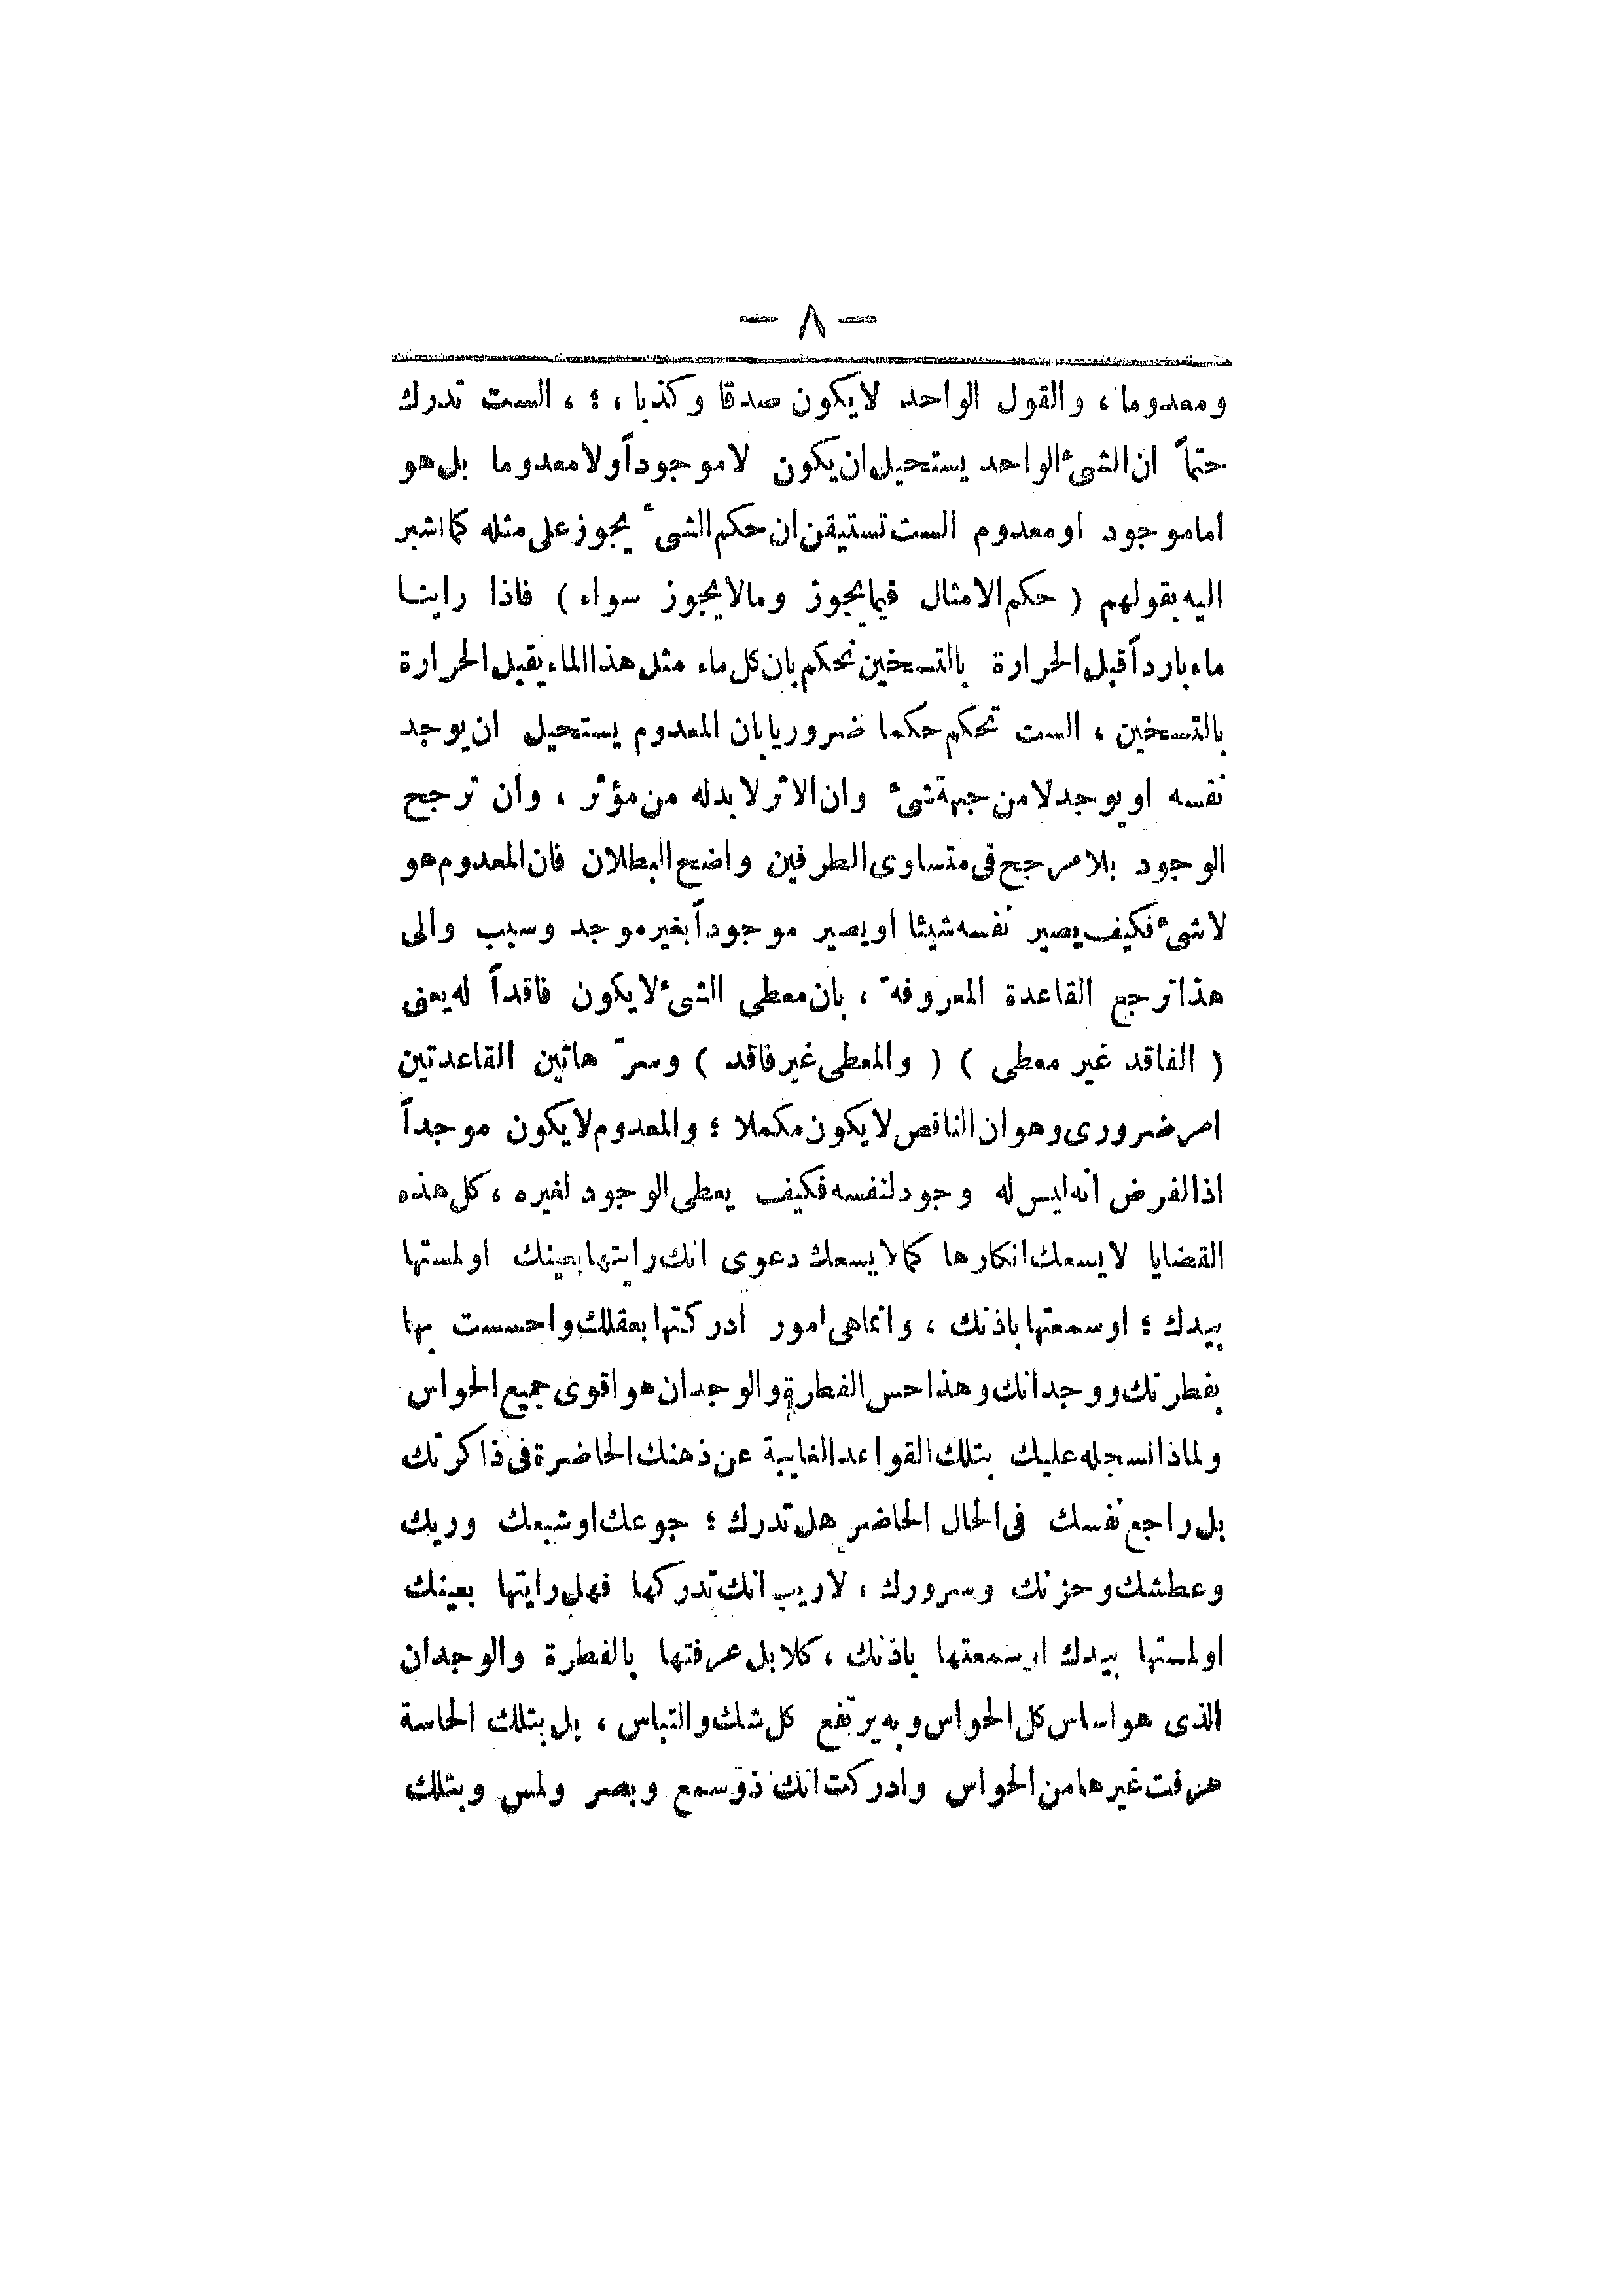 — ٨ —
ومعدوما ، والقول الواحد لايكون صدقا وكذبا ، ؛ ، الست تدرك
حتماً ان الشئ الواحد يستحيل ان يكون لاموجوداً ولامعدوما بل هو
اماموجود اومعدوم الست تستيقن ان حكم الشئ يجوز على مثله كما اشير
اليه بقولهم ( حكم الامثال فيما يجوز ومالا يجوز سواء ) فاذا راينا
ماء بارداً قبل الحرارة بالتسخين نحكم بان كل ماء مثل هذا الماء يقبل الحرارة
بالتسخين ، الست تحكم حكما ضروريا بان المعدوم يستحيل ان يوجد
نفسه او يوجد لا من جهة شئ وان الاثر لابدله من مؤثر ، وان ترجح
الوجود بلا مرجح فى متساوى الطرفين واضح البطلان فان المعدوم هو
لا شئ فكيف يصير نفسه شيئا او يصير موجوداً بغير موجد وسبب والى
هذا ترجع القاعدة المعروفة ، بان معطى الشئ لا يكون فاقداً له يعنى
( الفاقد غير معطى ) ( والمعطى غير فاقد ) وسرّ هاتين القاعدتين
امر ضرورى وهو ان الناقص لا يكون مكملا ؛ والمعدوم لا يكون موجداً
اذ الفرض انه ليس له وجود لنفسه فكيف يعطى الوجود لغيره ، كل هذه
القضايا لا يسعك انكارها كما لا يسعك دعوى انك رايتها بعينك او لمستها
بيدك ؛ او سمعتها باذنك ، وانما هى امور ادركتها بعقلك واحسست بها
بفطرتك ووجدانك وهذا حس الفطرة والوجدان هو اقوى جميع الحواس
ولماذا نسجله عليك بتلك القواعد الغايبة عن ذهنك الحاضرة فى ذاكرتك
بل راجع نفسك فى الحال الحاضر هل تدرك ؛ جوعك او شبعك وريك
وعطشك وحزنك وسرورك ، لا ريب انك تدركها فهل رايتها بعينك
او لمستها بيدك او سمعتها باذنك ، كلا بل عرفتها بالفطرة والوجدان
الذى هو اساس كل الحواس وبه يرتفع كل شك والتباس ، بل بتلك الحاسة
عرفت غيرها من الحواس وادركت انك ذو سمع وبصر ولمس وبتلك